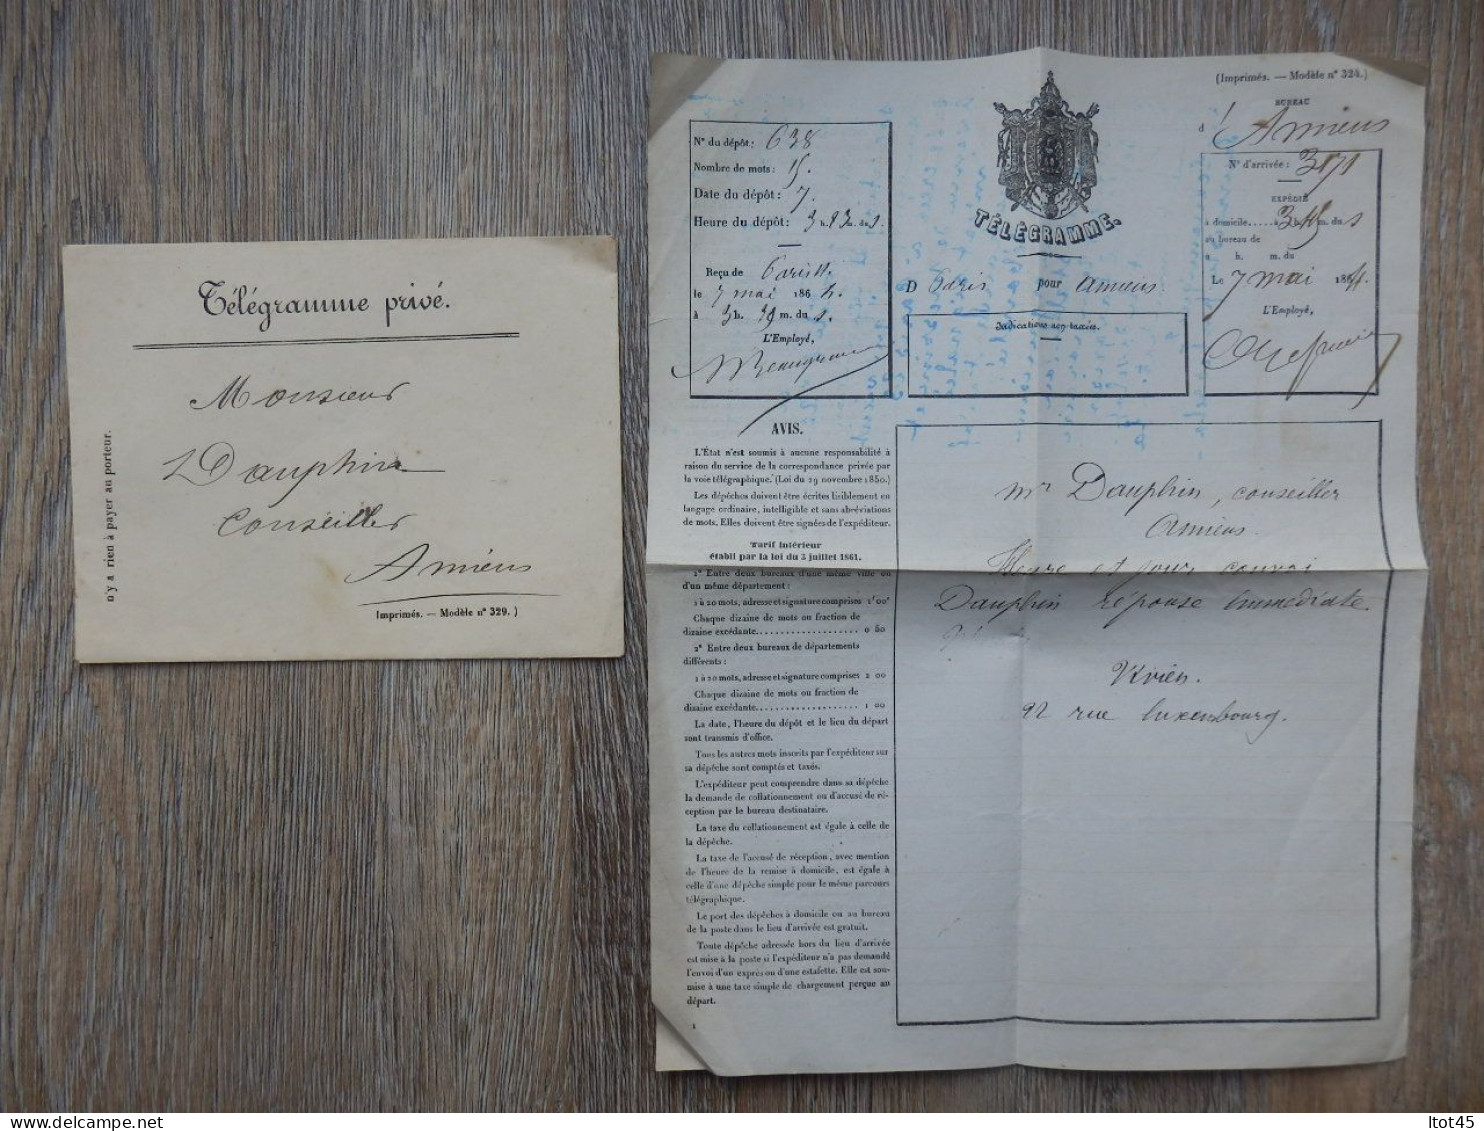 Télégramme privé.
Monsieur
Dauphin
Conseiller
Amiens
(Imprimés. — Modèle n° 329.)
n'y a rien à payer au porteur.
(Imprimés. — Modèle n° 324.)
BUREAU
d' Amiens
N° du dépôt: 638
Nombre de mots: 15.
Date du dépôt: 7.
Heure du dépôt: 3 h. 23 m. du s
Reçu de Paris
le 7 mai 1864.
à 3 h. 39 m. du s.
L'Employé,
TÉLÉGRAMME.
D Paris pour Amiens
Indications non taxées.
N° d'arrivée: 3171
EXPÉDIÉ
à domicile.... à 3 h. 45 m. du s
au bureau de
à h. m. du
Le 7 mai 1864.
L'Employé,
AVIS.
L'État n'est soumis à aucune responsabilité à
raison du service de la correspondance privée par
la voie télégraphique. (Loi du 29 novembre 1850.)
Les dépêches doivent être écrites lisiblement en
langage ordinaire, intelligible et sans abréviations
de mots. Elles doivent être signées de l'expéditeur.
Tarif intérieur
établi par la loi du 3 juillet 1861.
1° Entre deux bureaux d'une même ville ou
d'un même département:
1 à 20 mots, adresse et signature comprises 1f 00c
Chaque dizaine de mots ou fraction de
dizaine excédante.................... 0 50
2° Entre deux bureaux de départements
différents:
1 à 20 mots, adresse et signature comprises 2 00
Chaque dizaine de mots ou fraction de
dizaine excédante.................... 1 00
La date, l'heure du dépôt et le lieu du départ
sont transmis d'office.
Tous les autres mots inscrits par l'expéditeur sur
sa dépêche sont comptés et taxés.
L'expéditeur peut comprendre dans sa dépêche
la demande de collationnement ou d'accusé de ré-
ception par le bureau destinataire.
La taxe du collationnement est égale à celle de
la dépêche.
La taxe de l'accusé de réception, avec mention
de l'heure de la remise à domicile, est égale à
celle d'une dépêche simple pour le même parcours
télégraphique.
Le port des dépêches à domicile ou au bureau
de la poste dans le lieu d'arrivée est gratuit.
Toute dépêche adressée hors du lieu d'arrivée
est mise à la poste si l'expéditeur n'a pas demandé
l'envoi d'un exprès ou d'une estafette. Elle est sou-
mise à une taxe simple de chargement perçue au
départ.
1
Mr Dauphin, conseiller
Amiens.
Heure et jour convoi
Dauphin réponse immédiate.
92 rue luxembourg.
Itot45